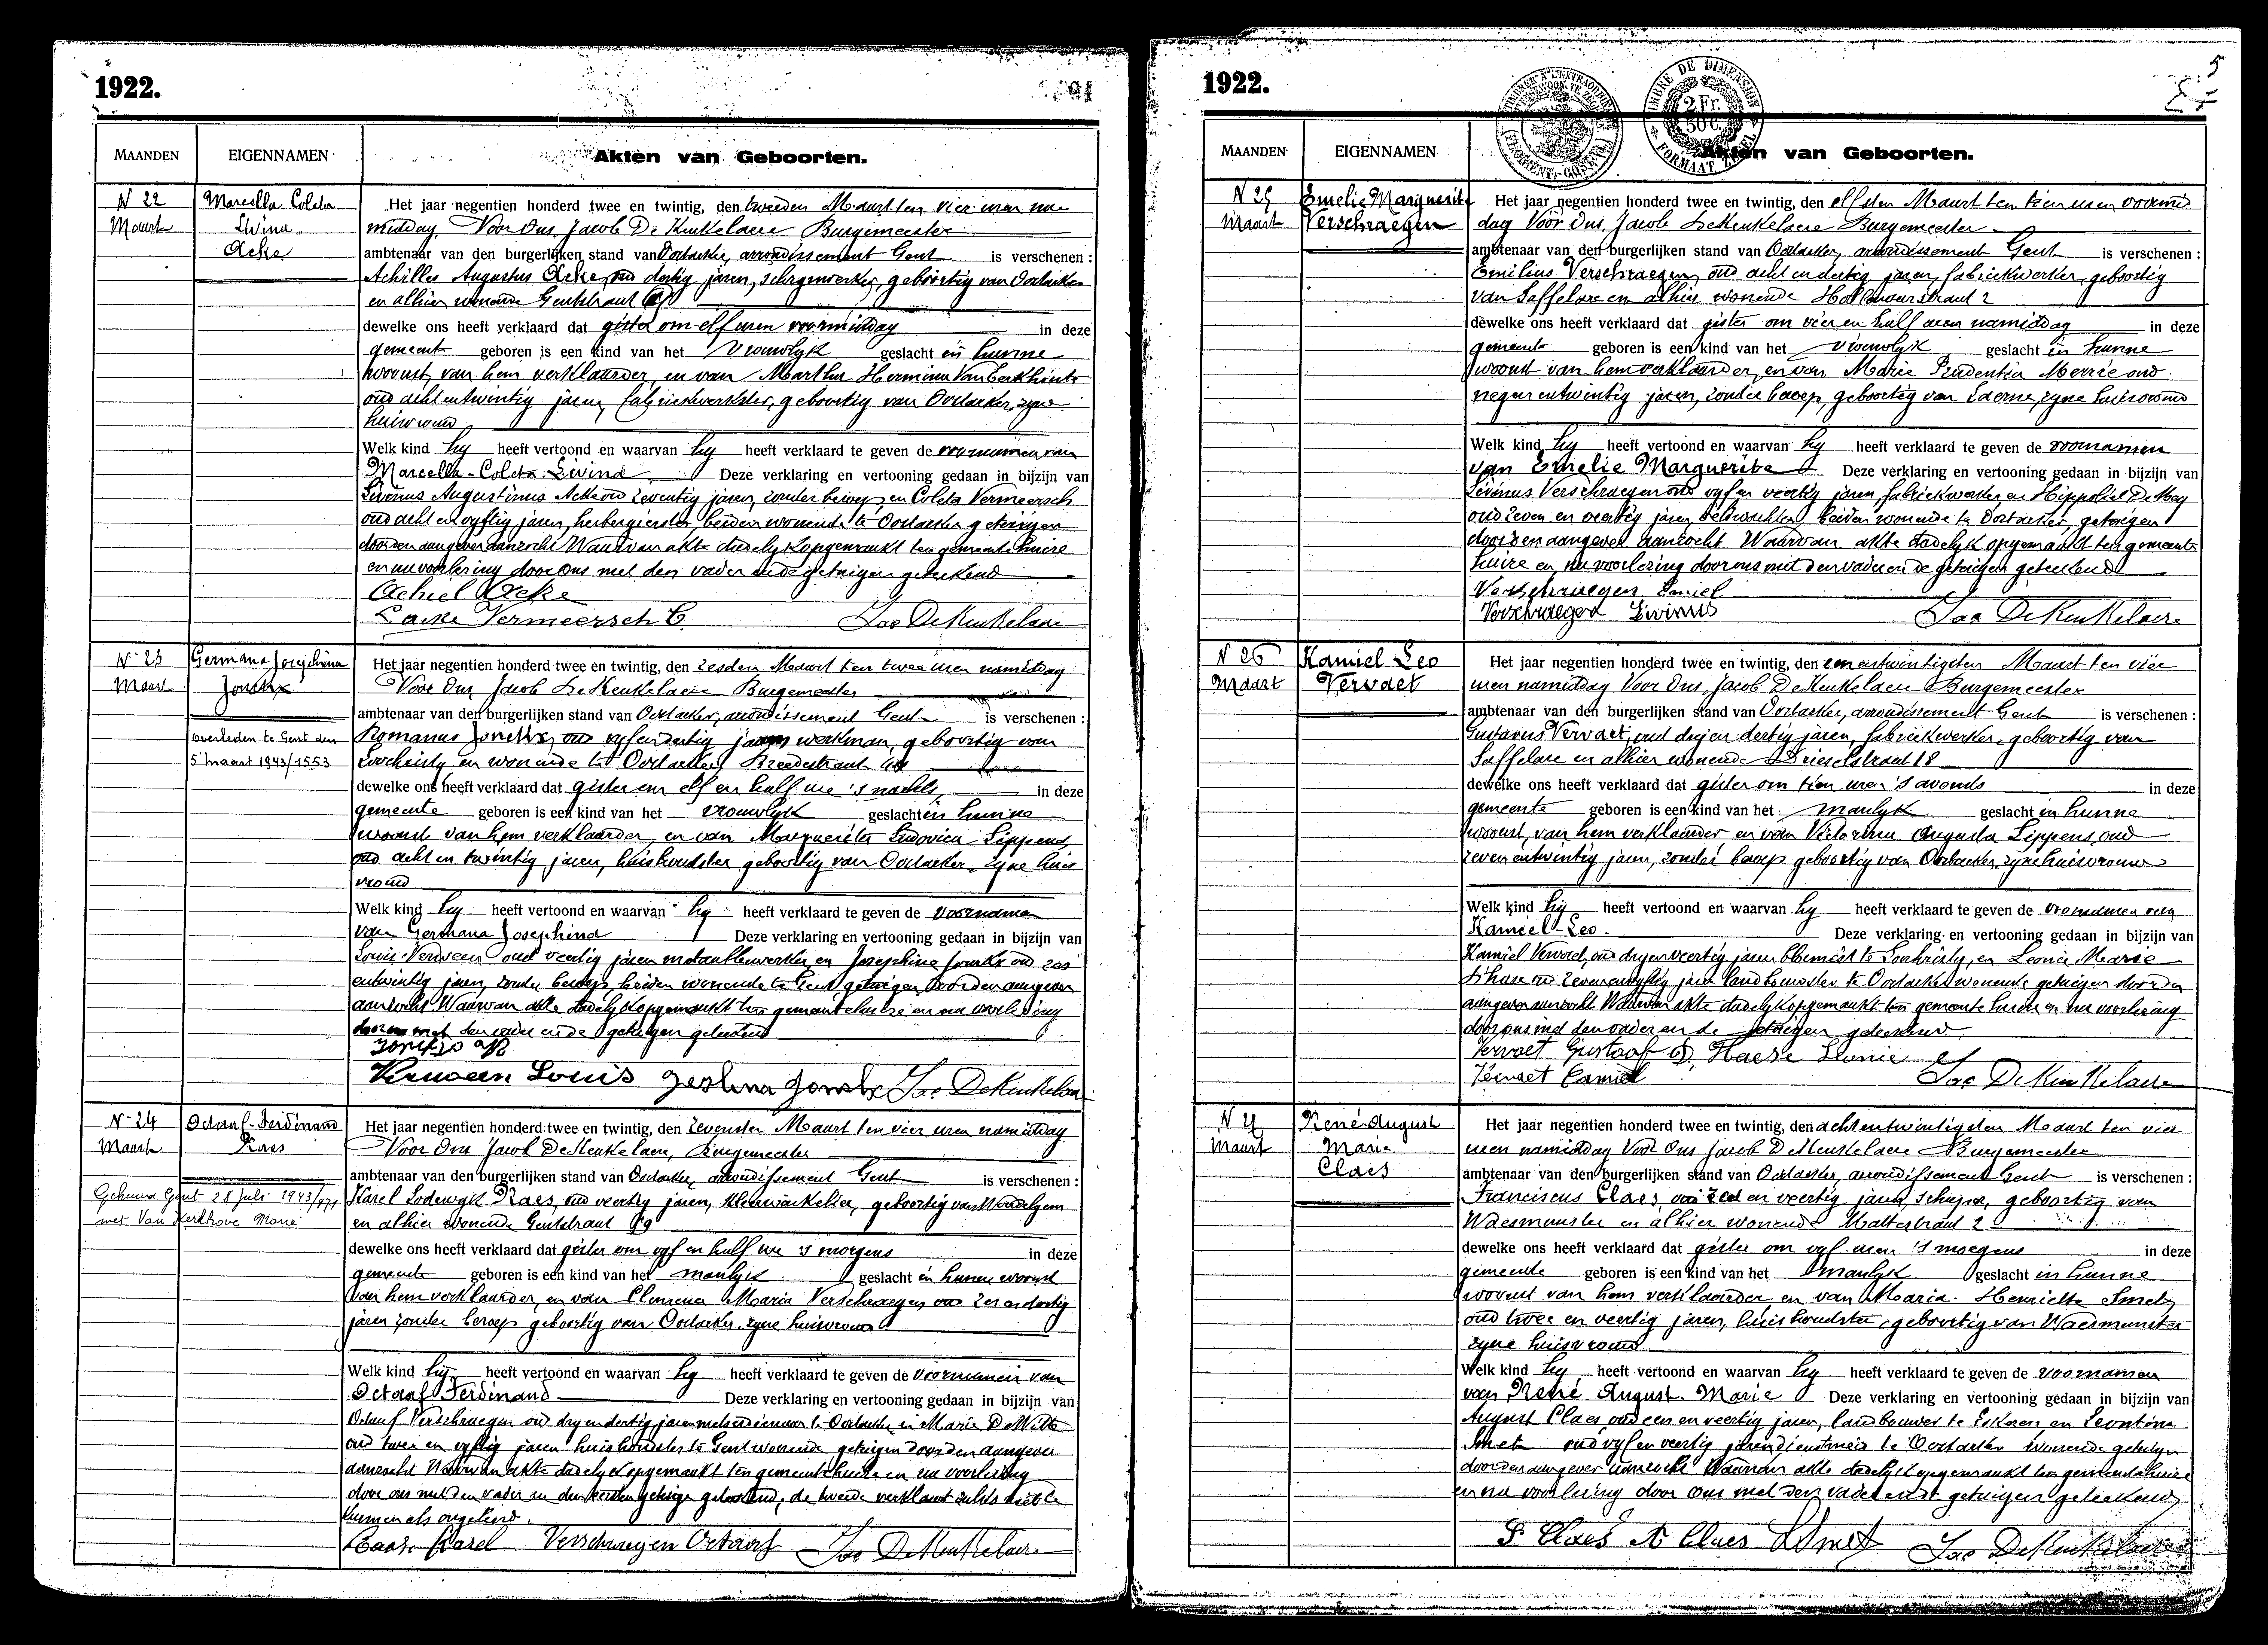 1922.
MAANDEN
EIGENNAMEN
Akten van Geboorten.
N 22
Maart
Marcella Coleta
Livina
Acke
Het jaar negentien honderd twee en twintig, den tweeden Maart ten vier uren na
middag Voor Ons, Jacob De Keukelaere Burgemeester
ambtenaar van den burgerlijken stand van Oostacker, arrondissement Gent is verschenen :
Achilles Augustus Acke, oud dertig jaren, schrynwerker, geboortig van Oostacker
en alhier wonende Gentstraat
dewelke ons heeft verklaard dat gister om elf uren voormiddag in deze
gemeente geboren is een kind van het vrouwlyk geslacht in hunne
woonst van hem verklaarder, en van Martha Hermina Van Eerkhoute
oud acht entwintig jaren, fabriekwerkster, geboortig van Oostacker, zyne
huisvrouw
Welk kind hy heeft vertoond en waarvan hy heeft verklaard te geven de voornamen van
Marcella-Coleta Livina Deze verklaring en vertooning gedaan in bijzijn van
Livinus Augustinus Acke oud zeventig jaren, zonder beroep en Coleta Vermeersch
oud acht en vyftig jaren, herbergierster, beiden wonende te Oostacker getuigen
door den aangever aanzocht Waarvan akte dadelyk opgemaakt ten gemeentehuize
en na voorlezing door ons met den vader en de getuigen geteekend
Achiel Acke
L acke Vermeersch C. Jac DeKeukelaere
N 23
Maart
Germana Josephina
Jonckx
overleden te Gent den
5 maart 1943/1553
Het jaar negentien honderd twee en twintig, den zesden Maart ten twee uren namiddag
Voor Ons Jacob De Keukelaere Burgemeester
ambtenaar van den burgerlijken stand van Oostacker, arrondissement Gent is verschenen :
Romanus Jonckx, oud vyfendertig jaren werkman, geboortig van
Loochristy en wonende te Oostacker Breedestraat
dewelke ons heeft verklaard dat gister om elf en half ure 's nachts, in deze
gemeente geboren is een kind van het vrouwlyk geslacht in hunne
woonst van hem verklaarder, en van Marguerita Ludovica Lippens,
oud acht en twintig jaren, huishoudster geboortig van Oostacker, zyne huis
vrouw
Welk kind hy heeft vertoond en waarvan hy heeft verklaard te geven de voornamen
van Germana Josephina Deze verklaring en vertooning gedaan in bijzijn van
Louis Verween oud veertig jaren metaalbewerker en Josephine Jonckx oud zes
entwintig jaren, zonder beroep beiden wonende te Gent getuigen door den aangever
aanzocht Waarvan akte dadelyk opgemaakt ten gemeentehuize en na voorlezing
door ons met den vader en de getuigen geteekend
Jonckx R
Verween Louis Jonckx Jac DeKeukelaere
N 24
Maart
Octaaf-Ferdinand
Raes
Gehuwd Gent 28 Juli 1943/
met Van Kerkhove Marie
Het jaar negentien honderd twee en twintig, den zevensten Maart ten vier uren namiddag
Voor Ons Jacob De Keukelaere, Burgemeester
ambtenaar van den burgerlijken stand van Oostacker, arrondissement Gent is verschenen :
Karel Lodewyk Raes, oud veertig jaren, kleerwinkelier, geboortig van Wondelgem
en alhier wonende Gentstraat 99
dewelke ons heeft verklaard dat gister om vyf en half ure 's morgens in deze
gemeente geboren is een kind van het manlyk geslacht in hunne woonst
van hem verklaarder, en van Clemence Maria Verschraegen oud zesendertig
jaren zonder beroep geboortig van Oostacker. zyne huisvrouw
Welk kind hy heeft vertoond en waarvan hy heeft verklaard te geven de voornamen van
Octaaf Ferdinand Deze verklaring en vertooning gedaan in bijzijn van
Octaaf Verschraegen oud dryendertig jaren metserdiender te Oostacker en Maria De Witte
oud twee en vyftig jaren huishoudster te Gent wonende getuigen door den aangever
aanzocht Waarvan akte dadelyk opgemaakt ten gemeentehuize en na voorlezing
door ons met den vader en den eersten getuige geteekend, de tweede verklaart zulks niet te
kunnen als ongeleerd.
Raes Karel Verschraegen Octaaf Jac DeKeukelaere
1922.
5
2 Fr.
50 C.
TIMBRE DE DIMENSION
FORMAAT ZEGEL
MAANDEN
EIGENNAMEN
Akten van Geboorten.
N 25
Maart
Emelie Marguerite
Verschraegen
Het jaar negentien honderd twee en twintig, den elfsten Maart ten tien uren voormid
dag Voor Ons, Jacob De Keukelaere Burgemeester
ambtenaar van den burgerlijken stand van Oostacker, arrondissement Gent is verschenen :
Emilius Verschraegen, oud acht en dertig jaren, fabriekwerker, geboortig
van Saffelare en alhier wonende
dewelke ons heeft verklaard dat gister om vier en half uren namiddag in deze
gemeente geboren is een kind van het vrouwlyk geslacht in hunne
woonst van hem verklaarder, en van Maria Prudentia Merrie oud
negen entwintig jaren, zonder beroep, geboortig van Laerne, zyne huisvrouw
Welk kind hy heeft vertoond en waarvan hy heeft verklaard te geven de voornamen
van Emelie Marguerite Deze verklaring en vertooning gedaan in bijzijn van
Livinus Verschraegen oud vyf en veertig jaren, fabriekwerker en Hippoliet De Mey
oud zeven en veertig jaren, veldwachter, beiden wonende te Oostacker, getuigen
door den aangever aanzocht Waarvan akte dadelyk opgemaakt ten gemeente
huize en, na voorlezing door ons met den vader en de getuigen geteekend
Verschraegen Emiel
Verschraegen Livinus Jac DeKeukelaere
N 26
Maart
Kamiel Leo
Vervaet
Het jaar negentien honderd twee en twintig, den eenentwintigsten Maart ten vier
uren namiddag Voor Ons, Jacob De Keukelaere Burgemeester
ambtenaar van den burgerlijken stand van Oostacker, arrondissement Gent is verschenen :
Gustavus Vervaet, oud dryen dertig jaren, fabriekwerker, geboortig van
Saffelare en alhier wonende Drieselstraat 18
dewelke ons heeft verklaard dat gister om tien uren 's avonds in deze
gemeente geboren is een kind van het manlyk geslacht in hunne
woonst, van hem verklaarder en van Victorina Augusta Lippens, oud
zeven entwintig jaren, zonder beroep geboortig van Oostacker, zyne huisvrouw
Welk kind hy heeft vertoond en waarvan hy heeft verklaard te geven de voornamen van
Kamiel-Leo. Deze verklaring en vertooning gedaan in bijzijn van
Kamiel Vervaet, oud dryenveertig jaren bloemist te Loochristy, en Leonie Marie
D'haese oud zevenenvyftig jaren landbouwster te Oostacker wonende getuigen door den
aangever aanzocht Waarvan akte dadelyk opgemaakt ten gemeente huize en na voorlezing
door ons met den vader en de getuigen geteekend
Vervaet Gustaaf D'Haese Leonie
Vervaet Camiel Jac DeKeukelaere
N 27
Maart
René-August
Maria
Claes
Het jaar negentien honderd twee en twintig, den achtentwintigsten Maart ten vier
uren namiddag Voor Ons Jacob De Keukelaere Burgemeester
ambtenaar van den burgerlijken stand van Oostacker, arrondissement Gent is verschenen :
Franciscus Claes, oud zes en veertig jaren, schipper, geboortig van
Waesmunster en alhier wonende 2
dewelke ons heeft verklaard dat gister om vyf uren 's morgens in deze
gemeente geboren is een kind van het manlyk geslacht in hunne
woonst van hem verklaarder en van Maria Henrietta Smet,
oud twee en veertig jaren, huishoudster, geboortig van Waesmunster
zyne huisvrouw
Welk kind hy heeft vertoond en waarvan hy heeft verklaard te geven de voornamen
van René August. Marie Deze verklaring en vertooning gedaan in bijzijn van
August Claes, oud een en veertig jaren, landbouwer te Exaerde en Leontina
Smet oud vyf en veertig jaren dienstmeid te Oostacker wonende getuigen
door den aangever aanzocht Waarvan akte dadelyk opgemaakt ten gemeentehuize
en na voorlezing door ons met den vader en de getuigen geteekend
F. Claes A Claes L Smet Jac DeKeukelaere